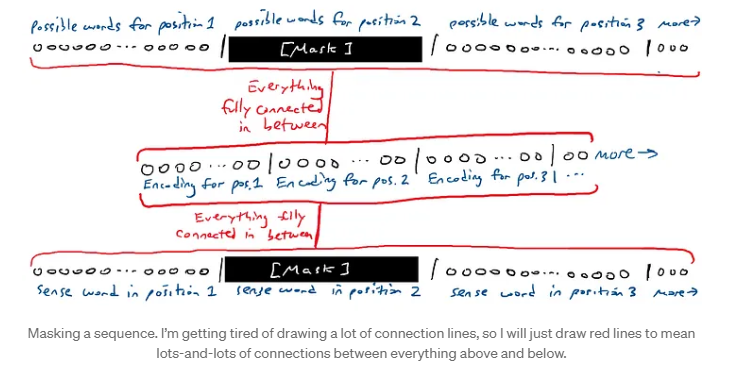 possible words for position 1 possible words for position 2 possible words for position 3 more→
[Mask]
Everything
fully connected
in between
more→
Encoding for pos.1 Encoding for pos. 2 Encoding for pos. 3 ...
Everything fully
connected in between
[Mask]
sense word in position 1 sense word in position 2 sense word in position 3 more→
Masking a sequence. I'm getting tired of drawing a lot of connection lines, so I will just draw red lines to mean
lots-and-lots of connections between everything above and below.